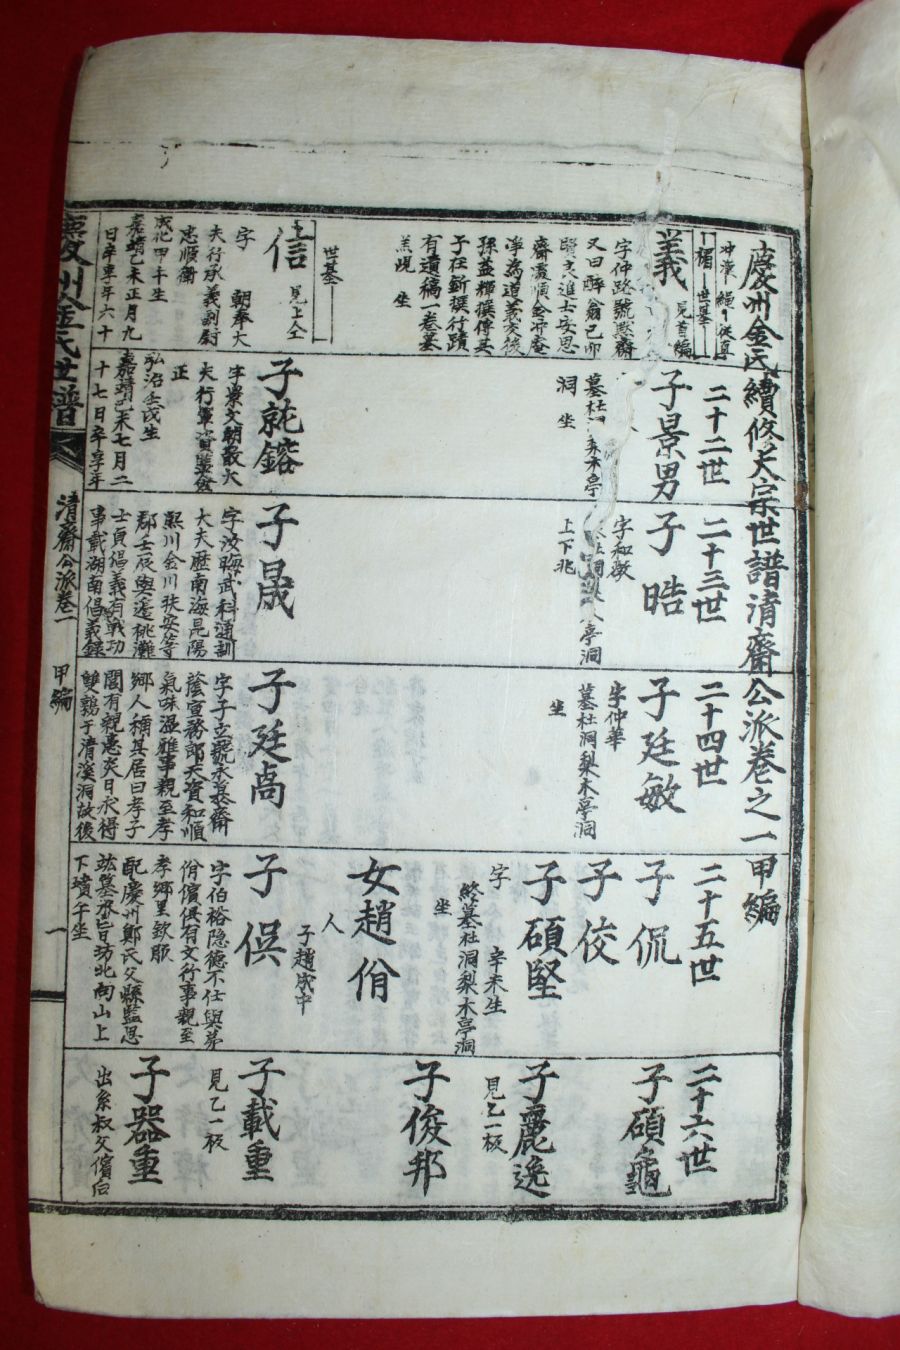 慶州金氏續修大宗世譜清齋公派卷之一 甲編
楣 世基
義 見首編
字仲路號默齋
又曰醉翁己卯
賢良進士安思
齋處順金冲庵
淨為道義交後
孫益輝撰傳其
子在新撰行蹟
有遺稿一卷墓
羔峴 坐
世基
信 見上仝
字 朝奉大
夫行承義副尉
忠順衛
成化甲午生
嘉靖己未正月九
日卒享年六十
二十二世
子景男
墓杜 梨木亭
洞 坐
子就鎔
字景文朝散大
夫行軍資監僉
正
弘治壬戌生
嘉靖己未七月二
十七日卒享年
二十三世
子晧
字和徵
上下兆
子晟
字汝晦武科通訓
大夫歷南海昆陽
熙川金川扶安等
郡壬辰與邊桃灘
士貞倡義有戰功
事載湖南倡義錄
二十四世
子廷敏
字仲華
墓杜洞梨木亭洞
坐
子廷卨
字子立號永慕齋
蔭宣務郎天資和順
氣味溫雅事親至孝
鄉人稱其居曰孝子
閭有親患炎日求得
雙鶉于清溪洞故後
二十五世
子侃
子佼
子碩堅
字 辛未生
終墓杜洞梨木亭洞
坐
女趙佾
人
子趙成中
子俁
字伯裕隱德不仕與弟
佾儐俱有文行事親至
孝鄉里欽服
配慶州鄭氏父縣監思
竑墓承旨坊北向山上
下墳午坐
二十六世
子碩龜
子麗逸
見乙一板
子俊邦
子載重
見乙一板
子器重
出系叔父儐后
慶州金氏世譜 清齋公派卷一 甲編 一